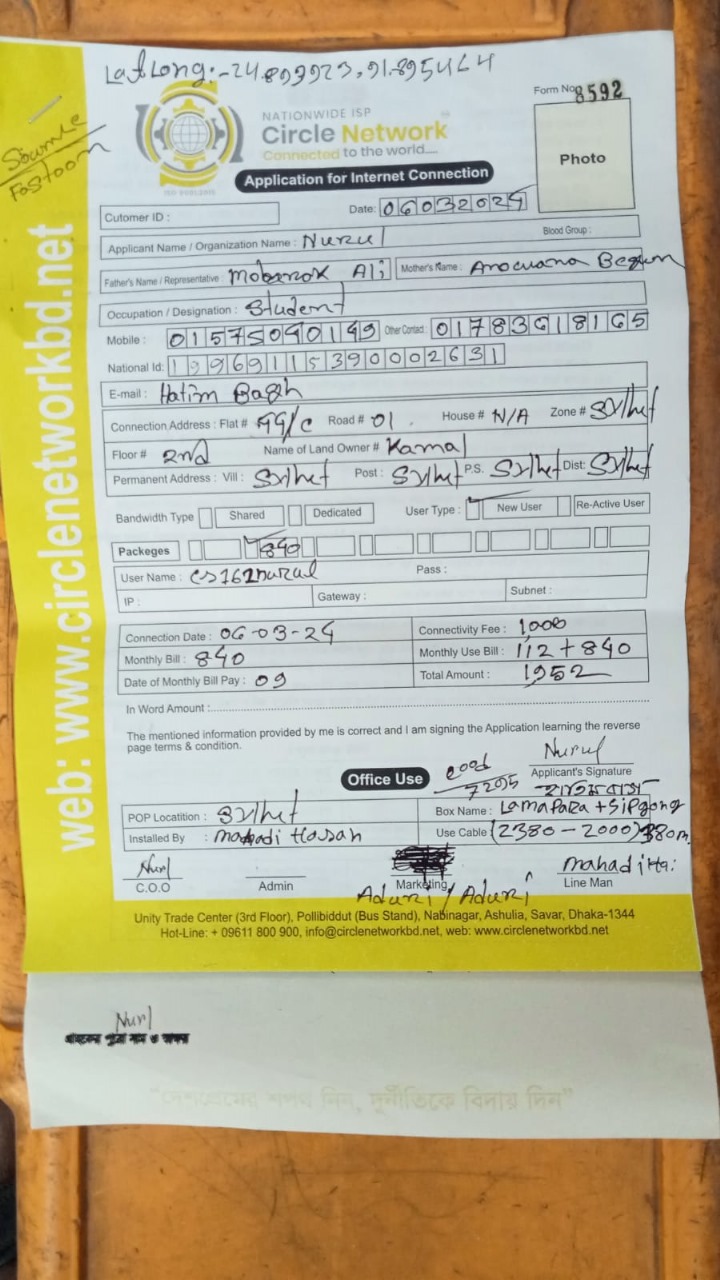 LatLong:-24.899923,91.895464
Form No: 8592
NATIONWIDE ISP
Circle Network
Connected to the world....
ISO 9001:2015
Photo
Application for Internet Connection
Date: 06032024
Cutomer ID :
Blood Group :
Applicant Name / Organization Name : Nurul
Father's Name / Representative : Mobarok Ali Mother's Name : Begum
Occupation / Designation : Student
Mobile : 01575090149 Other Contact : 01783618165
National Id: 19969115390002631
E-mail : Hatim Bagh
Connection Address : Flat # 99/c Road # 01 House # N/A Zone # Sylhet
Floor # 2nd Name of Land Owner # Kamal
Permanent Address : Vill : Sylhet Post : Sylhet P.S. Sylhet Dist: Sylhet
Bandwidth Type Shared Dedicated User Type : New User Re-Active User
Packeges 840
User Name : cs162nurul Pass :
IP : Gateway : Subnet :
Connection Date : 06-03-24 Connectivity Fee : 1000
Monthly Bill : 840 Monthly Use Bill : 112 + 840
Date of Monthly Bill Pay : 09 Total Amount : 1952
In Word Amount :
The mentioned information provided by me is correct and I am signing the Application learning the reverse
page terms & condition.
Nurul
Office Use Applicant's Signature
POP Locatition : Sylhet Box Name : Lamapara + Sipgong
Installed By : mahadi Hassan Use Cable (2380-2000) 380m
Nurl mahadi
C.O.O Admin Marketing Line Man
Aduri / Aduri
Unity Trade Center (3rd Floor), Pollibiddut (Bus Stand), Nabinagar, Ashulia, Savar, Dhaka-1344
Hot-Line: + 09611 800 900, info@circlenetworkbd.net, web: www.circlenetworkbd.net
web: www.circlenetworkbd.net
Nurl
"দেশপ্রেমের শপথ নিন, দুর্নীতিকে বিদায় দিন"